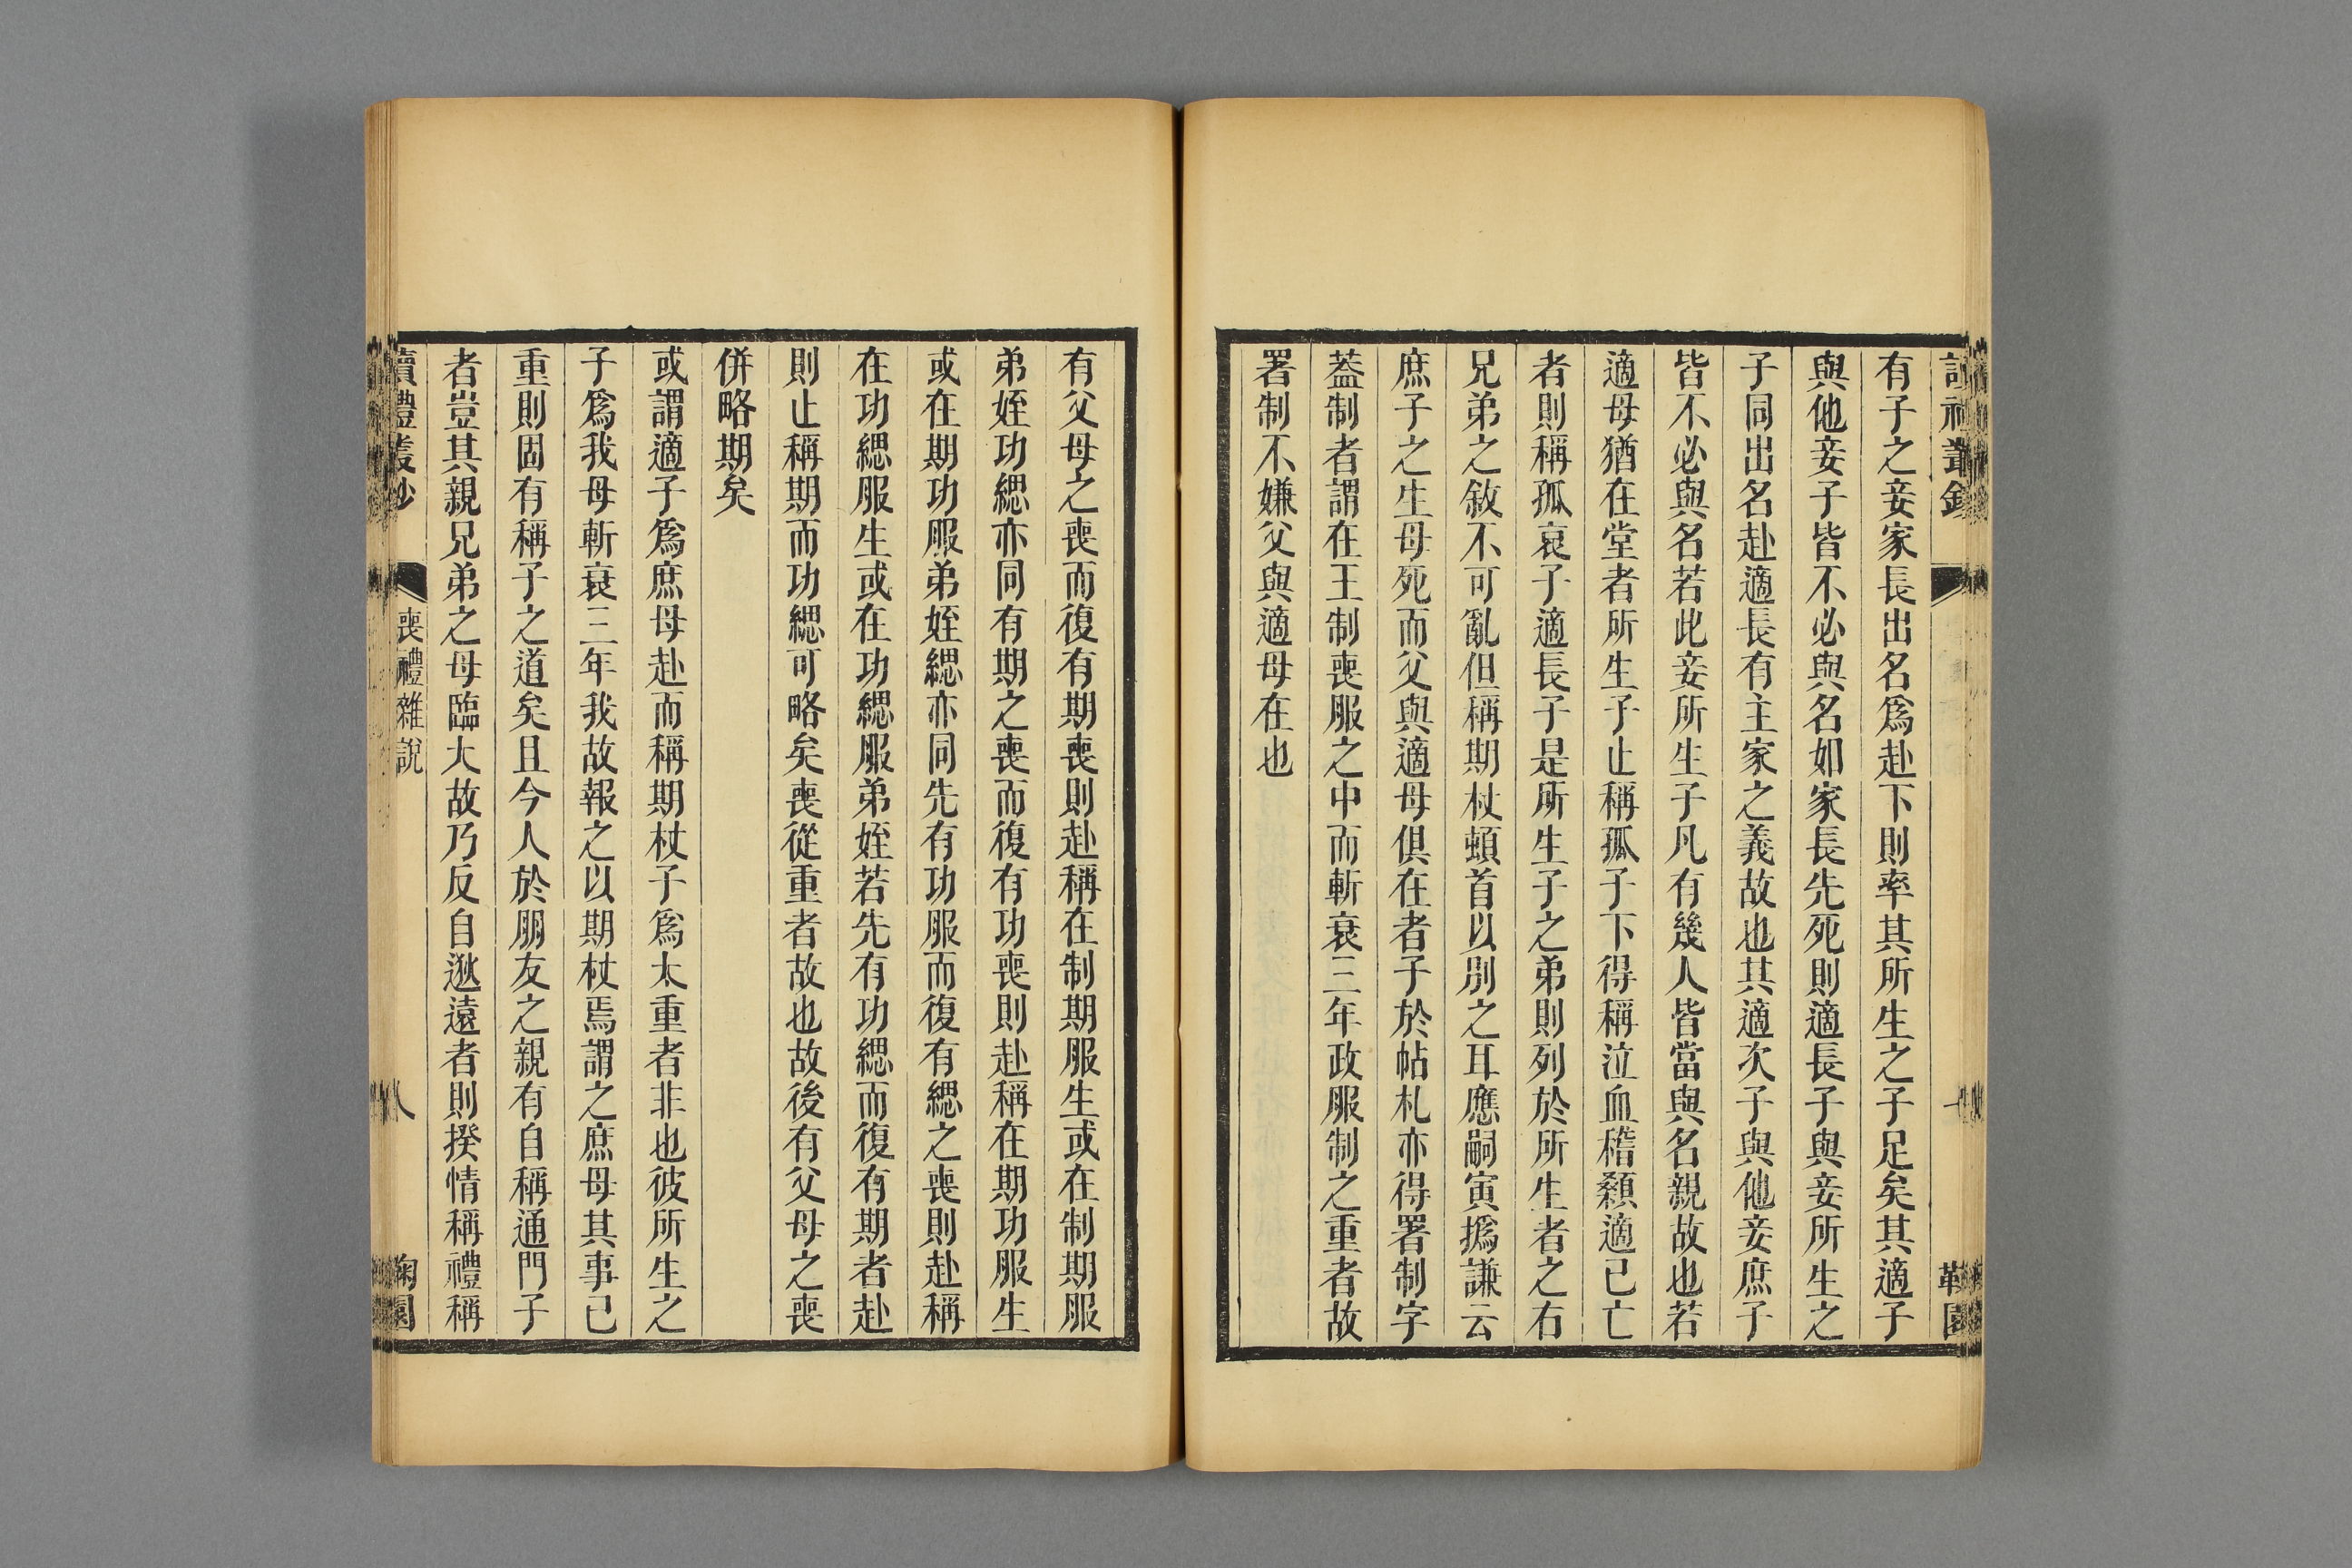 有子之妾家長出名爲赴下則率其所生之子足矣其適子
與他妾子皆不必與名如家長先死則適長子與妾所生之
子同出名赴適長有主家之義故也其適次子與他妾庶子
皆不必與名若此妾所生子凡有幾人皆當與名親故也若
適母猶在堂者所生子止稱孤子下得稱泣血稽顙適已亡
者則稱孤哀子適長子是所生子之弟則列於所生者之右
兄弟之敘不可亂但稱期杖頓首以別之耳應嗣寅撝謙云
庶子之生母死而父與適母俱在者子於帖札亦得署制字
葢制者謂在王制喪服之中而斬衰三年政服制之重者故
署制不嫌父與適母在也
有父母之喪而復有期喪則赴稱在制期服生或在制期服
弟姪功緦亦同有期之喪而復有功喪則赴稱在期功服生
或在期功服弟姪緦亦同先有功服而復有緦之喪則赴稱
在功緦服生或在功緦服弟姪若先有功緦而復有期者赴
則止稱期而功緦可略矣喪從重者故也故後有父母之喪
併略期矣
或謂適子爲庶母赴而稱期杖子爲太重者非也彼所生之
子爲我母斬衰三年我故報之以期杖焉謂之庶母其事已
重則固有稱子之道矣且今人於朋友之親有自稱通門子
者豈其親兄弟之母臨大故乃反自逖遠者則揆情稱禮稱
讀禮叢鈔
喪禮雜說
八
鞠園